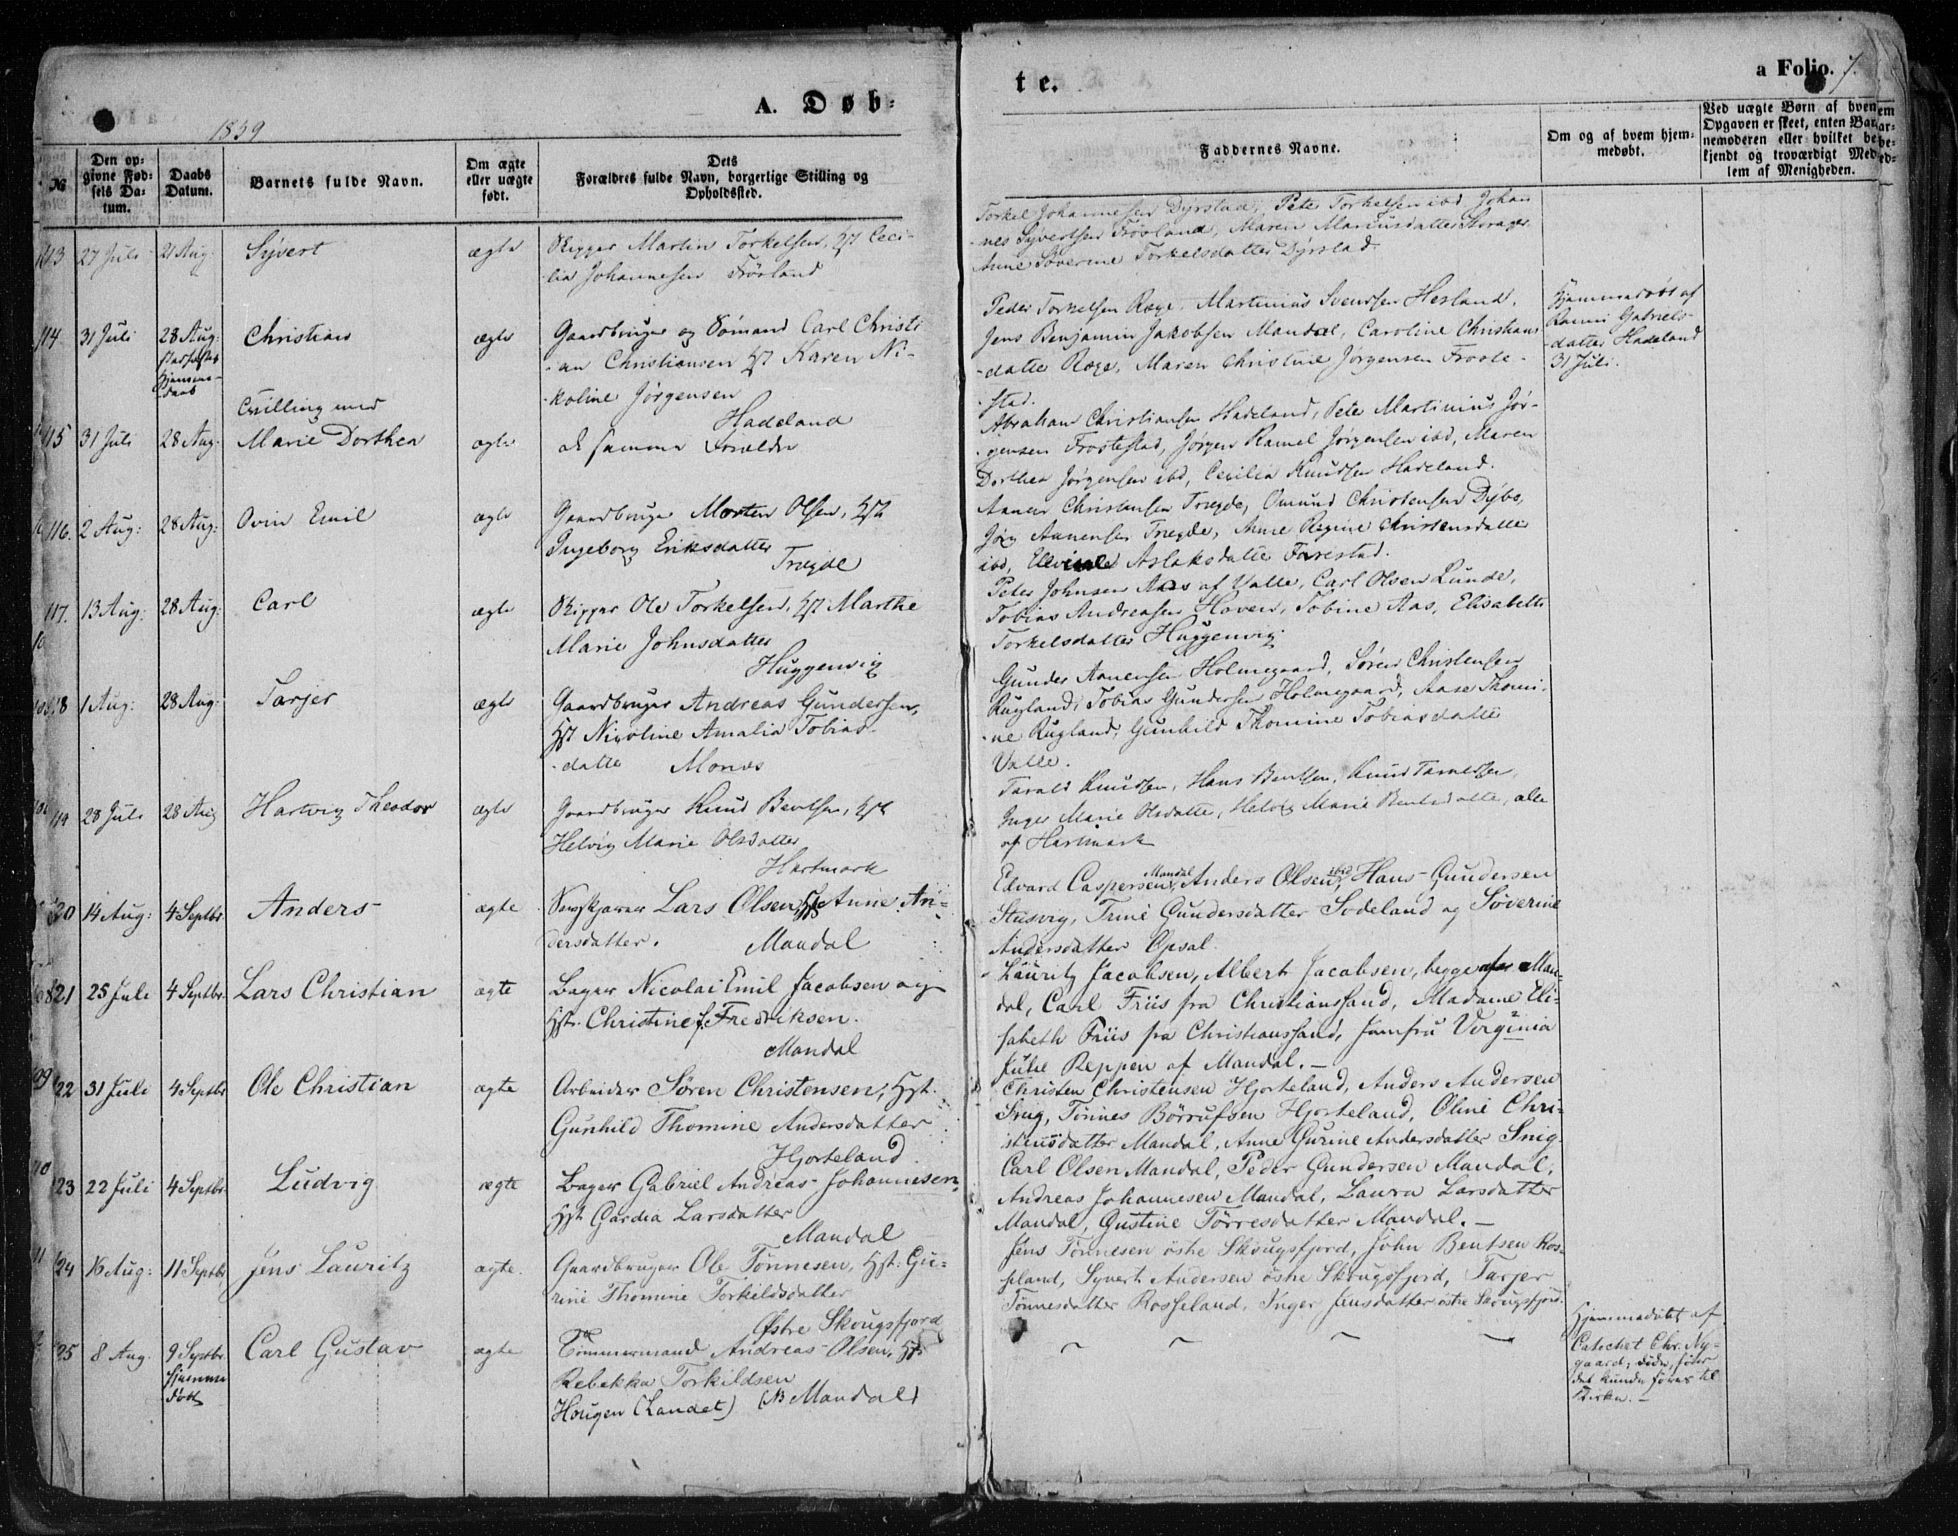 A. Døb=
te.
a Folio. 7.
1859
№
Den op=
givne Fød=
sels Da=
tum.
Daabs
Datum.
Barnets fulde Navn.
Om ægte
eller uægte
født.
Dets
Forældres fulde Navn, borgerlige Stilling og
Opholdssted.
Faddernes Navne.
Om og af hvem hjem=
medøbt.
Ved uægte Børn af hvem
Opgaven er skeet, enten Bar=
nemoderen eller hvilket be=
kjendt og troværdigt Med=
lem af Menigheden.
113 27 Juli 21 Aug: Syvert ægte Skipper Martin Torkelsen, Hst Ceci-
lia Johannesen Frøvland
Torkel Johannesen Dyrstad, Peter Torkelsen ibd Johan
-nes Syvertsen Frøvland, Maren Marcusdatter
Anne Severine Torkelsdatter Dyrstad.
114 31 Juli 28 Aug: Christian ægte Gaardbruger og Sømand Carl Christi
-an Christiansen Hst Karen Ni-
-koline Jørgensen
Hadeland
Peder Torkelsen Røge, Martinius Svendsen Hesland,
Jens Benjamin Jakobsen Mandal, Caroline Christians
-datter Røge, Maren Christine Jørgensen Froste-
-stad.
Hjemmedøbt af
Gabriels-
-datter Hadeland
31 Juli.
Tvilling med
115 31 Juli 28 Aug: Marie Dorthea ægte de samme Forældre
Abraham Christiansen Hadeland, Peter Martinius Jør-
-gensen Frostestad, Jørgen Ramel Jørgensen ibd, Maren
Dorthea Jørgensen ibd, Cecilia Knudsen Hadeland.
116. 2 Aug: 28 Aug: Ovin Emil ægte Gaardbruger Morten Olsen, Hst
Ingeborg Eriksdatter
Tregde
Aanen Christensen Tregde, Omund Christensen Dybo,
Jørg Aanensen Tregde, Anne Regine Christensdatter
ibd, Aslaksdatter Farestad.
117. 13 Aug: 28 Aug: Carl ægte Skipper Ole Torkelsen, Hst Marthe
Marie Johnsdatter
Huggenvig
Peter Johnsen Aas af Valle, Carl Olsen Lunde,
Tobias Andreasen Haven, Tobine Aas, Elisabeth
Torkelsdatter Huggenvig.
118 1 Aug: 28 Aug: Tarjer ægte Gaardbruger Andreas Gundersen,
Hst Nicoline Amalia Tobias-
-datter Mones
Gunder Aanensen Holmegaard, Søren Christensen
Rugland, Tobias Gundersen Holmegaard, Aase Thomi-
-ne Rugland, Gunhild Thomine Tobiasdatter
Valle.
119 28 Juli 28 Aug Hartvig Theodor ægte Gaardbruger Knud Bentsen, Hst
Helvig Marie Olsdatter
Hartmark
Tarald Knudsen, Hans Bentsen, Knud Taraldsen,
Inger Marie Olsdatter, Helvig Marie Bentsdatter, alle
af Hartmark
120 14 Aug: 4 Septbr. Anders ægte Lars Olsen, Hst Anne An-
dersdatter. Mandal
Edvard Caspersen Mandal, Anders Olsen ibd, Hans Gundersen
Stusvig, Trine Gundersdatter Sodeland og Søverine
Andersdatter Opsal.
121 25 Juli 4 Septbr. Lars Christian ægte Bager Nicolai Emil Jacobsen og
Hstr. Christine f. Fredriksen.
Mandal
Lauritz Jacobsen, Albert Jacobsen, begge af Man-
dal, Carl Friis fra Christianssand, Madame Eli-
sabeth Friis fra Christianssand, Jomfru Verginia
Julie Reppen af Mandal. —
122 31 Juli 4 Septbr Ole Christian ægte Arbeider Søren Christensen, Hst.
Gunhild Thomine Andersdatter
Hjorteland
Christen Christensen Hjorteland, Anders Andersen
Snig, Tønnes Børrufsen Hjorteland, Oline Chri-
stensdatter Mandal, Anne Gurine Andersdatter Snig.
123 22 Juli 4 Septbr. Ludvig ægte Bager Gabriel Andreas Johannesen,
Hst Gardia Larsdatter
Mandal
Carl Olsen Mandal, Peder Gundersen Mandal,
Andreas Johannesen Mandal, Laura Larsdatter
Mandal, Gustine Tørresdatter Mandal. —
124 16 Aug: 11 Septbr. Jens Lauritz ægte. Gaardbruger Ole Tønnesen, Hst. Gu-
rine Thomine Torkildsdatter
Østre Skougsfjord
Jens Tønnesen østre Skougsfjord, John Bentsen Ros-
seland, Syvert Andersen østre Skougsfjord, Tarjer
Tønnesdatter Rosseland, Inger Jensdatter østre Skougsfjord.
125 8 Aug. 9 Septbr. Hjemme døbt Carl Gustav ægte Tømmermand Andreas Olsen, Hst
Rebekka Torkildsen
Hougen (Landet) (NB Mandal)
Hjemmedøbt af
Catechet Chr. Ny-
gaard; døde, før
det kunde føres til
Kirken. —